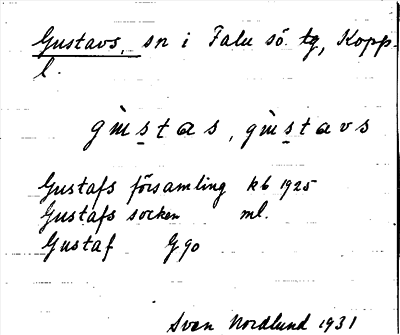 Gustavs, sn i Falu sö. tg, Kopp.
l.
gùstas, gùstavs
Gustafs församling kb 1925
Gustafs socken ml.
Gustaf G 90
Sven Nordlund 1931